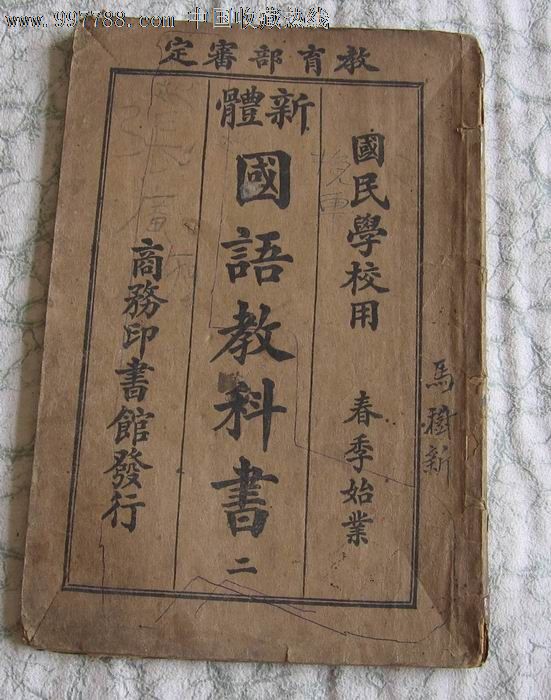 www.997788.com 中国收藏热线
教育部審定
國民學校用
春季始業
新體
國語教科書
二
商務印書館發行
馬樹新